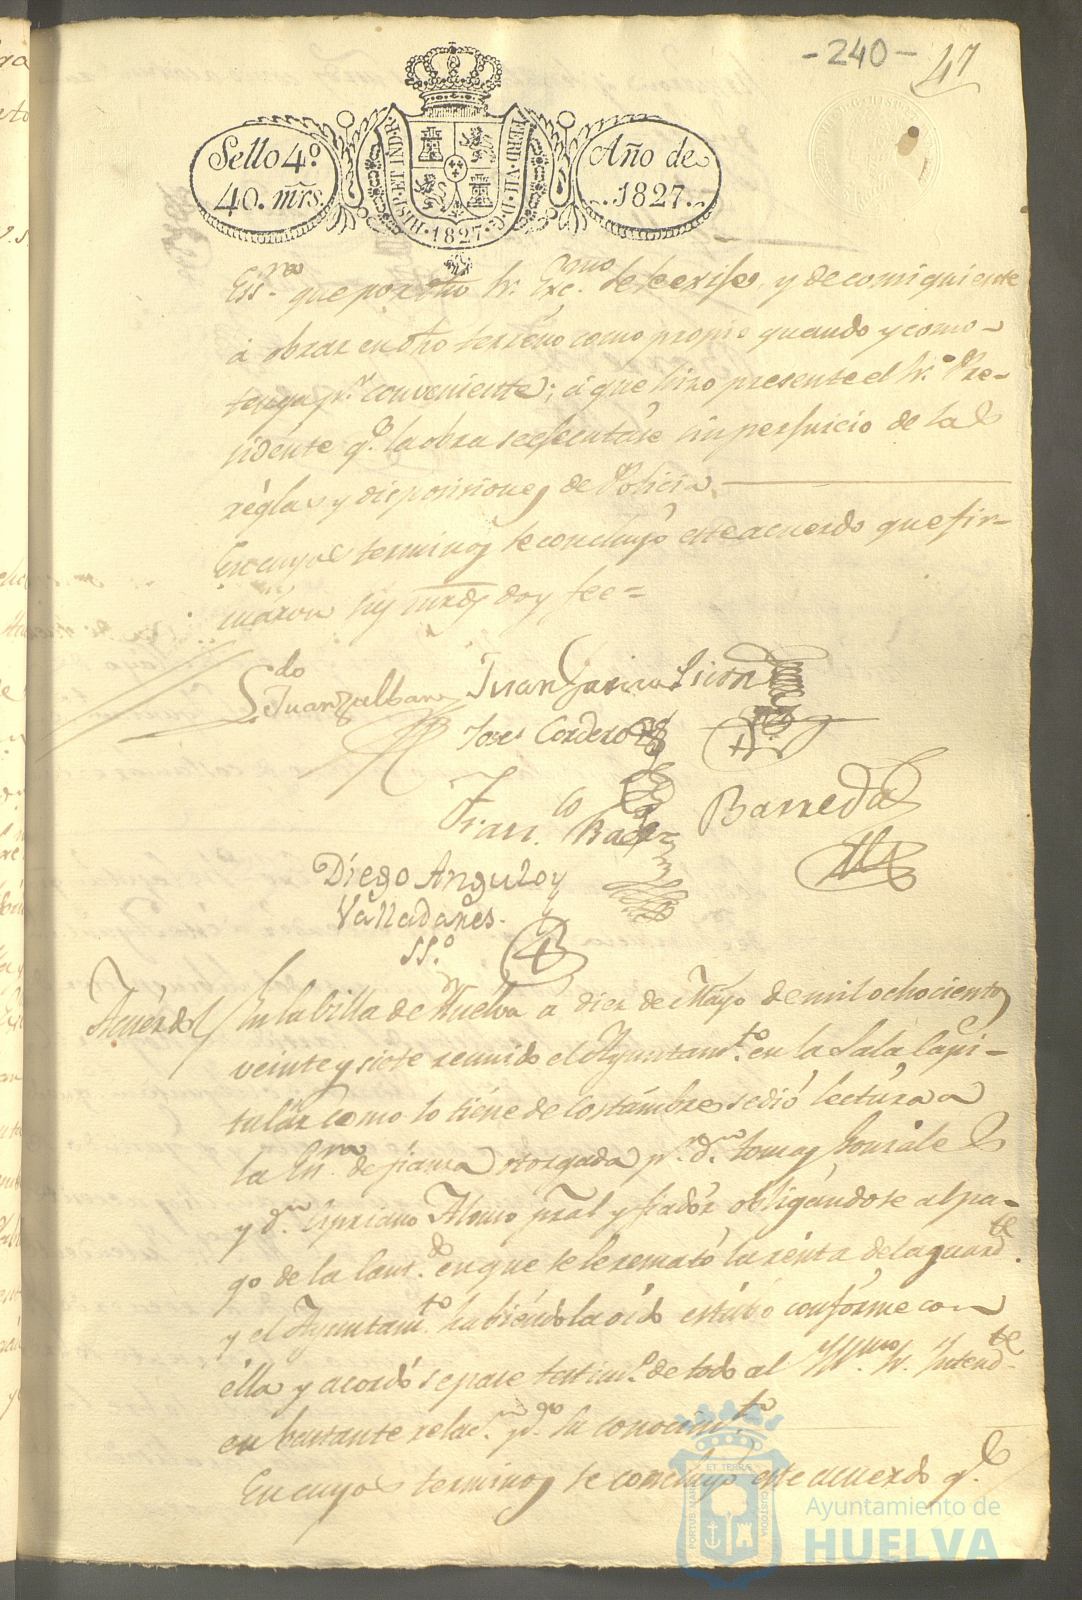 - 240 - 47
Sello 4º
40. mrs.
HISP. ET IND. R. FERD. VII. D. G.
· 1827 ·
Año de
1827.
Essno que por dho Sr. Excmo y de consiguiente
á obrar en dho terreno como propio quando y como
tenga pr. conveniente; á que hizo presente el Sr. Pre-
sidente qe. la obra se efecutase sin perjuicio de las
réglas y disposisiones de Policia.
En cuyos terminos se concluyó este acuerdo que fir-
máron sus mrds doy fee=
Lcdo Juan Zalbara
Juan Garcia
Jose Cordero
Franco Baez
Barreda
Diego Angulo y
Valladares.
SSº
Acuerdo
En la billa de Huelva á diez de Mayo de mil ochocientos
veinte y siete reunido el Ayuntamto. en la Sala Capi-
tular como lo tiéne de costúmbre se dió lectura a
la Esra de fianza otorgada pr. Dn. Tomas Gonzales
y dn. Cipriano Alonso pral y fiadór obligándose al pa-
go de la Cantd. en que se le remató la rénta del aguardte.
y el Ayuntamto habiéndola oido estubo confórme con
élla y acordó se pase testimo. de todo al Yllmo Sr. Yntendte
en bastante relacn. pa. su conocimto.
En cuyos terminos se concluyó este acuerdo qe.
PORTUS MARIS ET TERRAE CUSTODIA
Ayuntamiento de
HUELVA